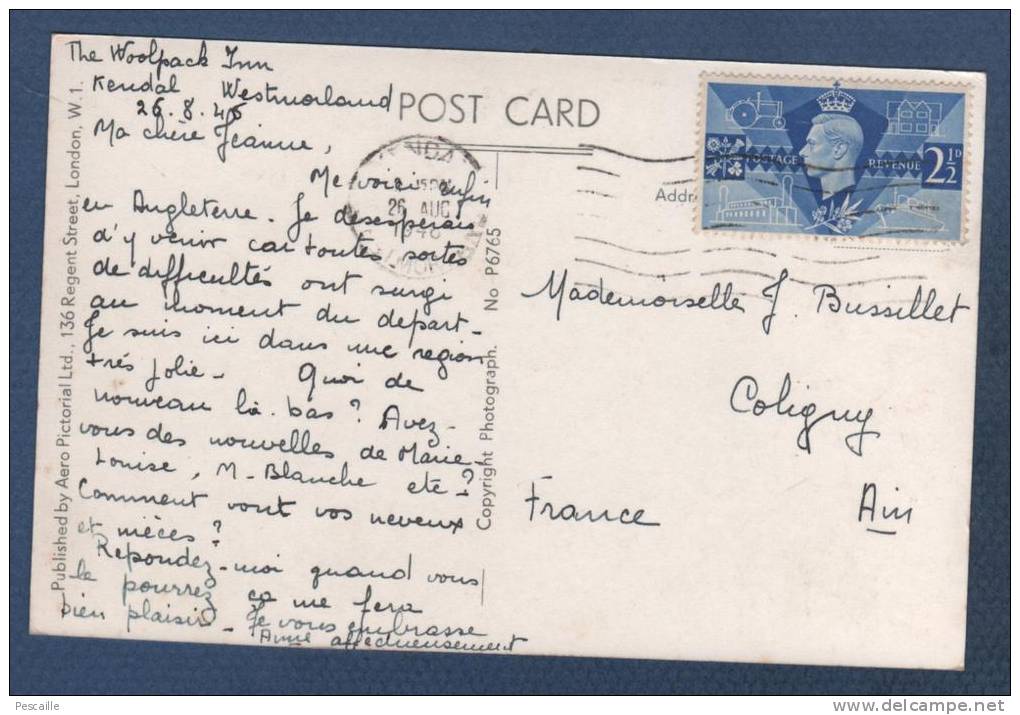 The Woolpack Inn
Kendal Westmorland
26.8.46
Ma chère Jeanne,
Me voici enfin
en Angleterre. Je desesperais
d'y venir car toutes sortes
de difficultés ont surgi
au moment du depart-
Je suis ici dans une region
très jolie- Quoi de
nouveau là-bas? Avez-
vous des nouvelles de Marie-
Louise, M-Blanche etc-?
Comment vont vos neveux
et nièces?
Repondez-moi quand vous
le pourrez ça me fera
bien plaisir- Je vous embrasse
affectueusement
Anne
POST CARD
Published by Aero Pictorial Ltd., 136 Regent Street, London, W.1.
Copyright Photograph. No P6765
KENDAL
26 AUG
1946
WESTMORLAND
Addre
POSTAGE REVENUE
2½D
Mademoiselle J. Bussillet
Coligny
Ain
France
Pescaille
http://www.delcampe.net